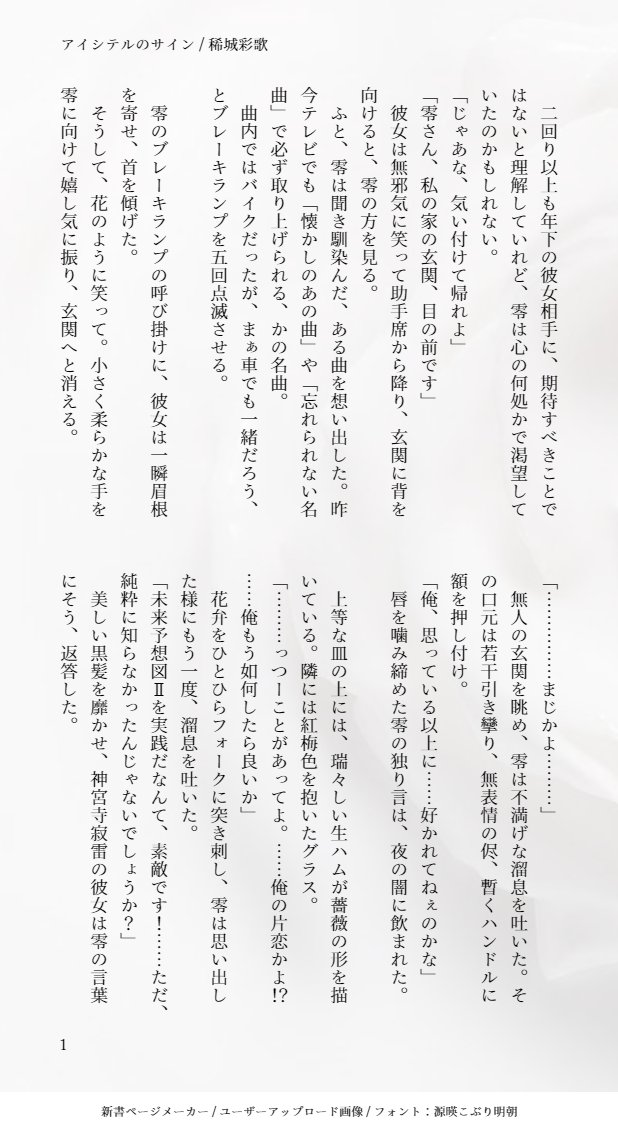 アイシテルのサイン / 稀城彩歌
　二回り以上も年下の彼女相手に、期待すべきことで
はないと理解していれど、零は心の何処かで渇望して
いたのかもしれない。
「じゃあな、気い付けて帰れよ」
「零さん、私の家の玄関、目の前です」
　彼女は無邪気に笑って助手席から降り、玄関に背を
向けると、零の方を見る。
　ふと、零は聞き馴染んだ、ある曲を想い出した。昨
今テレビでも「懐かしのあの曲」や「忘れられない名
曲」で必ず取り上げられる、かの名曲。
　曲内ではバイクだったが、まぁ車でも一緒だろう、
とブレーキランプを五回点滅させる。
　零のブレーキランプの呼び掛けに、彼女は一瞬眉根
を寄せ、首を傾げた。
　そうして、花のように笑って。小さく柔らかな手を
零に向けて嬉し気に振り、玄関へと消える。
「……………まじかよ………」
　無人の玄関を眺め、零は不満げな溜息を吐いた。そ
の口元は若干引き攣り、無表情の侭、暫くハンドルに
額を押し付け。
「俺、思っている以上に……好かれてねぇのかな」
　唇を噛み締めた零の独り言は、夜の闇に飲まれた。
　上等な皿の上には、瑞々しい生ハムが薔薇の形を描
いている。隣には紅梅色を抱いたグラス。
「………っつーことがあってよ。……俺の片恋かよ!?
……俺もう如何したら良いか」
　花弁をひとひらフォークに突き刺し、零は思い出し
た様にもう一度、溜息を吐いた。
「未来予想図Ⅱを実践だなんて、素敵です！……ただ、
純粋に知らなかったんじゃないでしょうか？」
　美しい黒髪を靡かせ、神宮寺寂雷の彼女は零の言葉
にそう、返答した。
1
新書ページメーカー / ユーザーアップロード画像 / フォント：源暎こぶり明朝